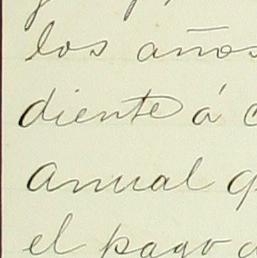 los años
diente á
anual
el pago